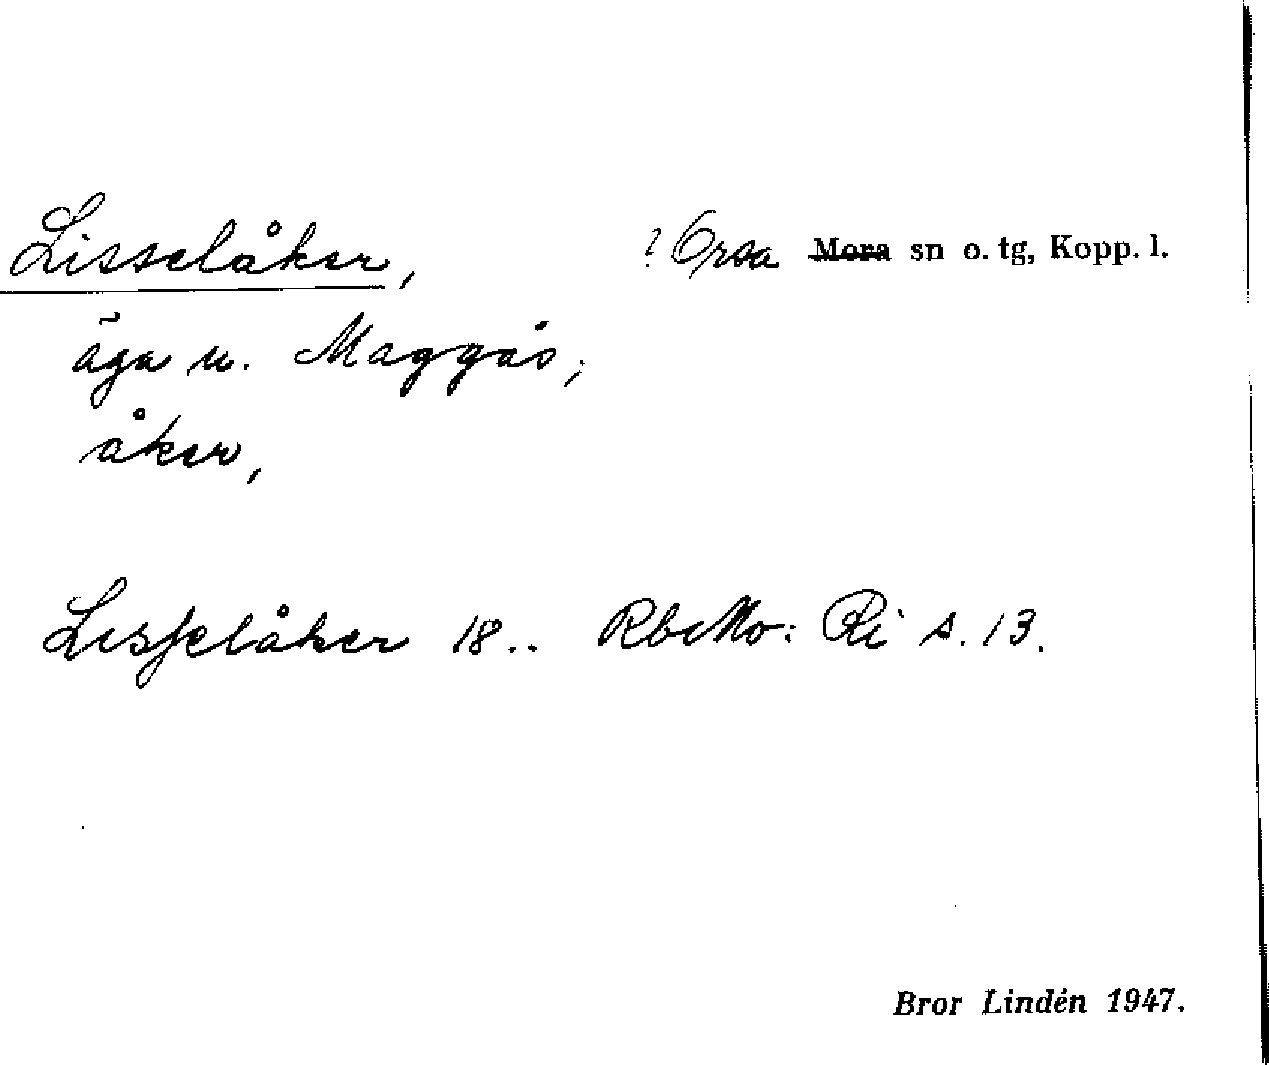 Lisselåker, ? Orsa Mora sn o. tg, Kopp. l.
äga u. Maggås;
åker,
Lisselåker 18.. RbcMo: Ri s. 13.
Bror Lindén 1947.